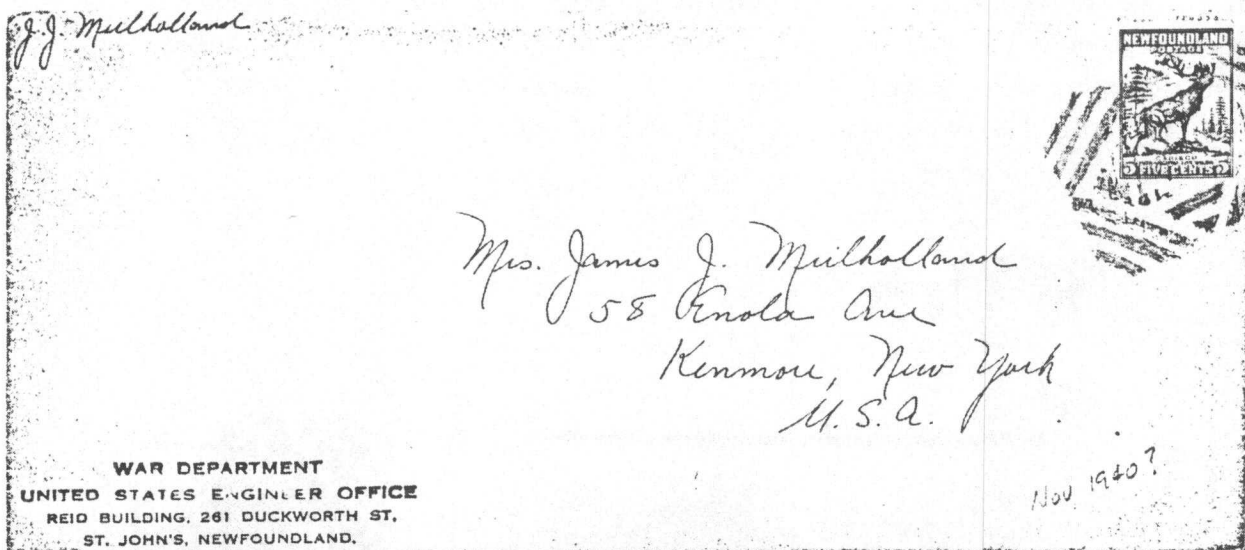 J. J. Mulholland
NEWFOUNDLAND
POSTAGE
CARIBOU
5 FIVE CENTS 5
Mrs. James J. Mulholland
58 Enola Ave
Kenmore, New York
U.S.A.
WAR DEPARTMENT
UNITED STATES ENGINEER OFFICE
REID BUILDING, 261 DUCKWORTH ST,
ST. JOHN'S, NEWFOUNDLAND.
Nov 1940?